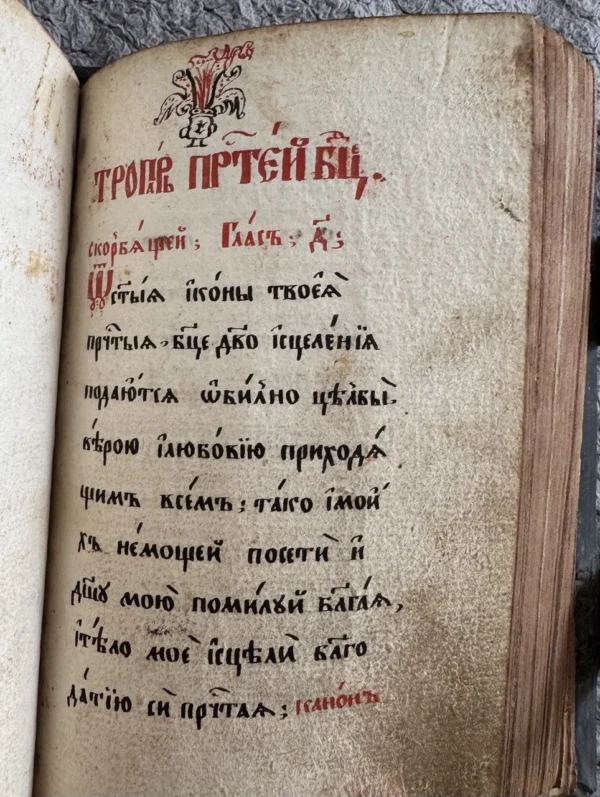 ТРОПАРЬ ПРТ҃ЕЙ БЦ҃Е.
скорбѧ́щей; Гла́съ, д҃;
Ѿ ст҃ы́ѧ їко́ны твоеѧ̀
прⷱ҇тыѧ, бц҃е дв҃о їсцеле́нїѧ
подаю́тсѧ ѡ҆би́лно цѣлбы̀
вѣ́рою їлюбо́вїю приходѧ́
щимъ всѣ́мъ; та́ко їмои́
хъ не́мощей посетѝ и҆
дш҃у мою̀ поми́луй бл҃га́ѧ,
їтѣ́ло моѐ їсцелѝ бл҃го
да́тїю сѝ прⷱ҇таѧ; кано́нъ